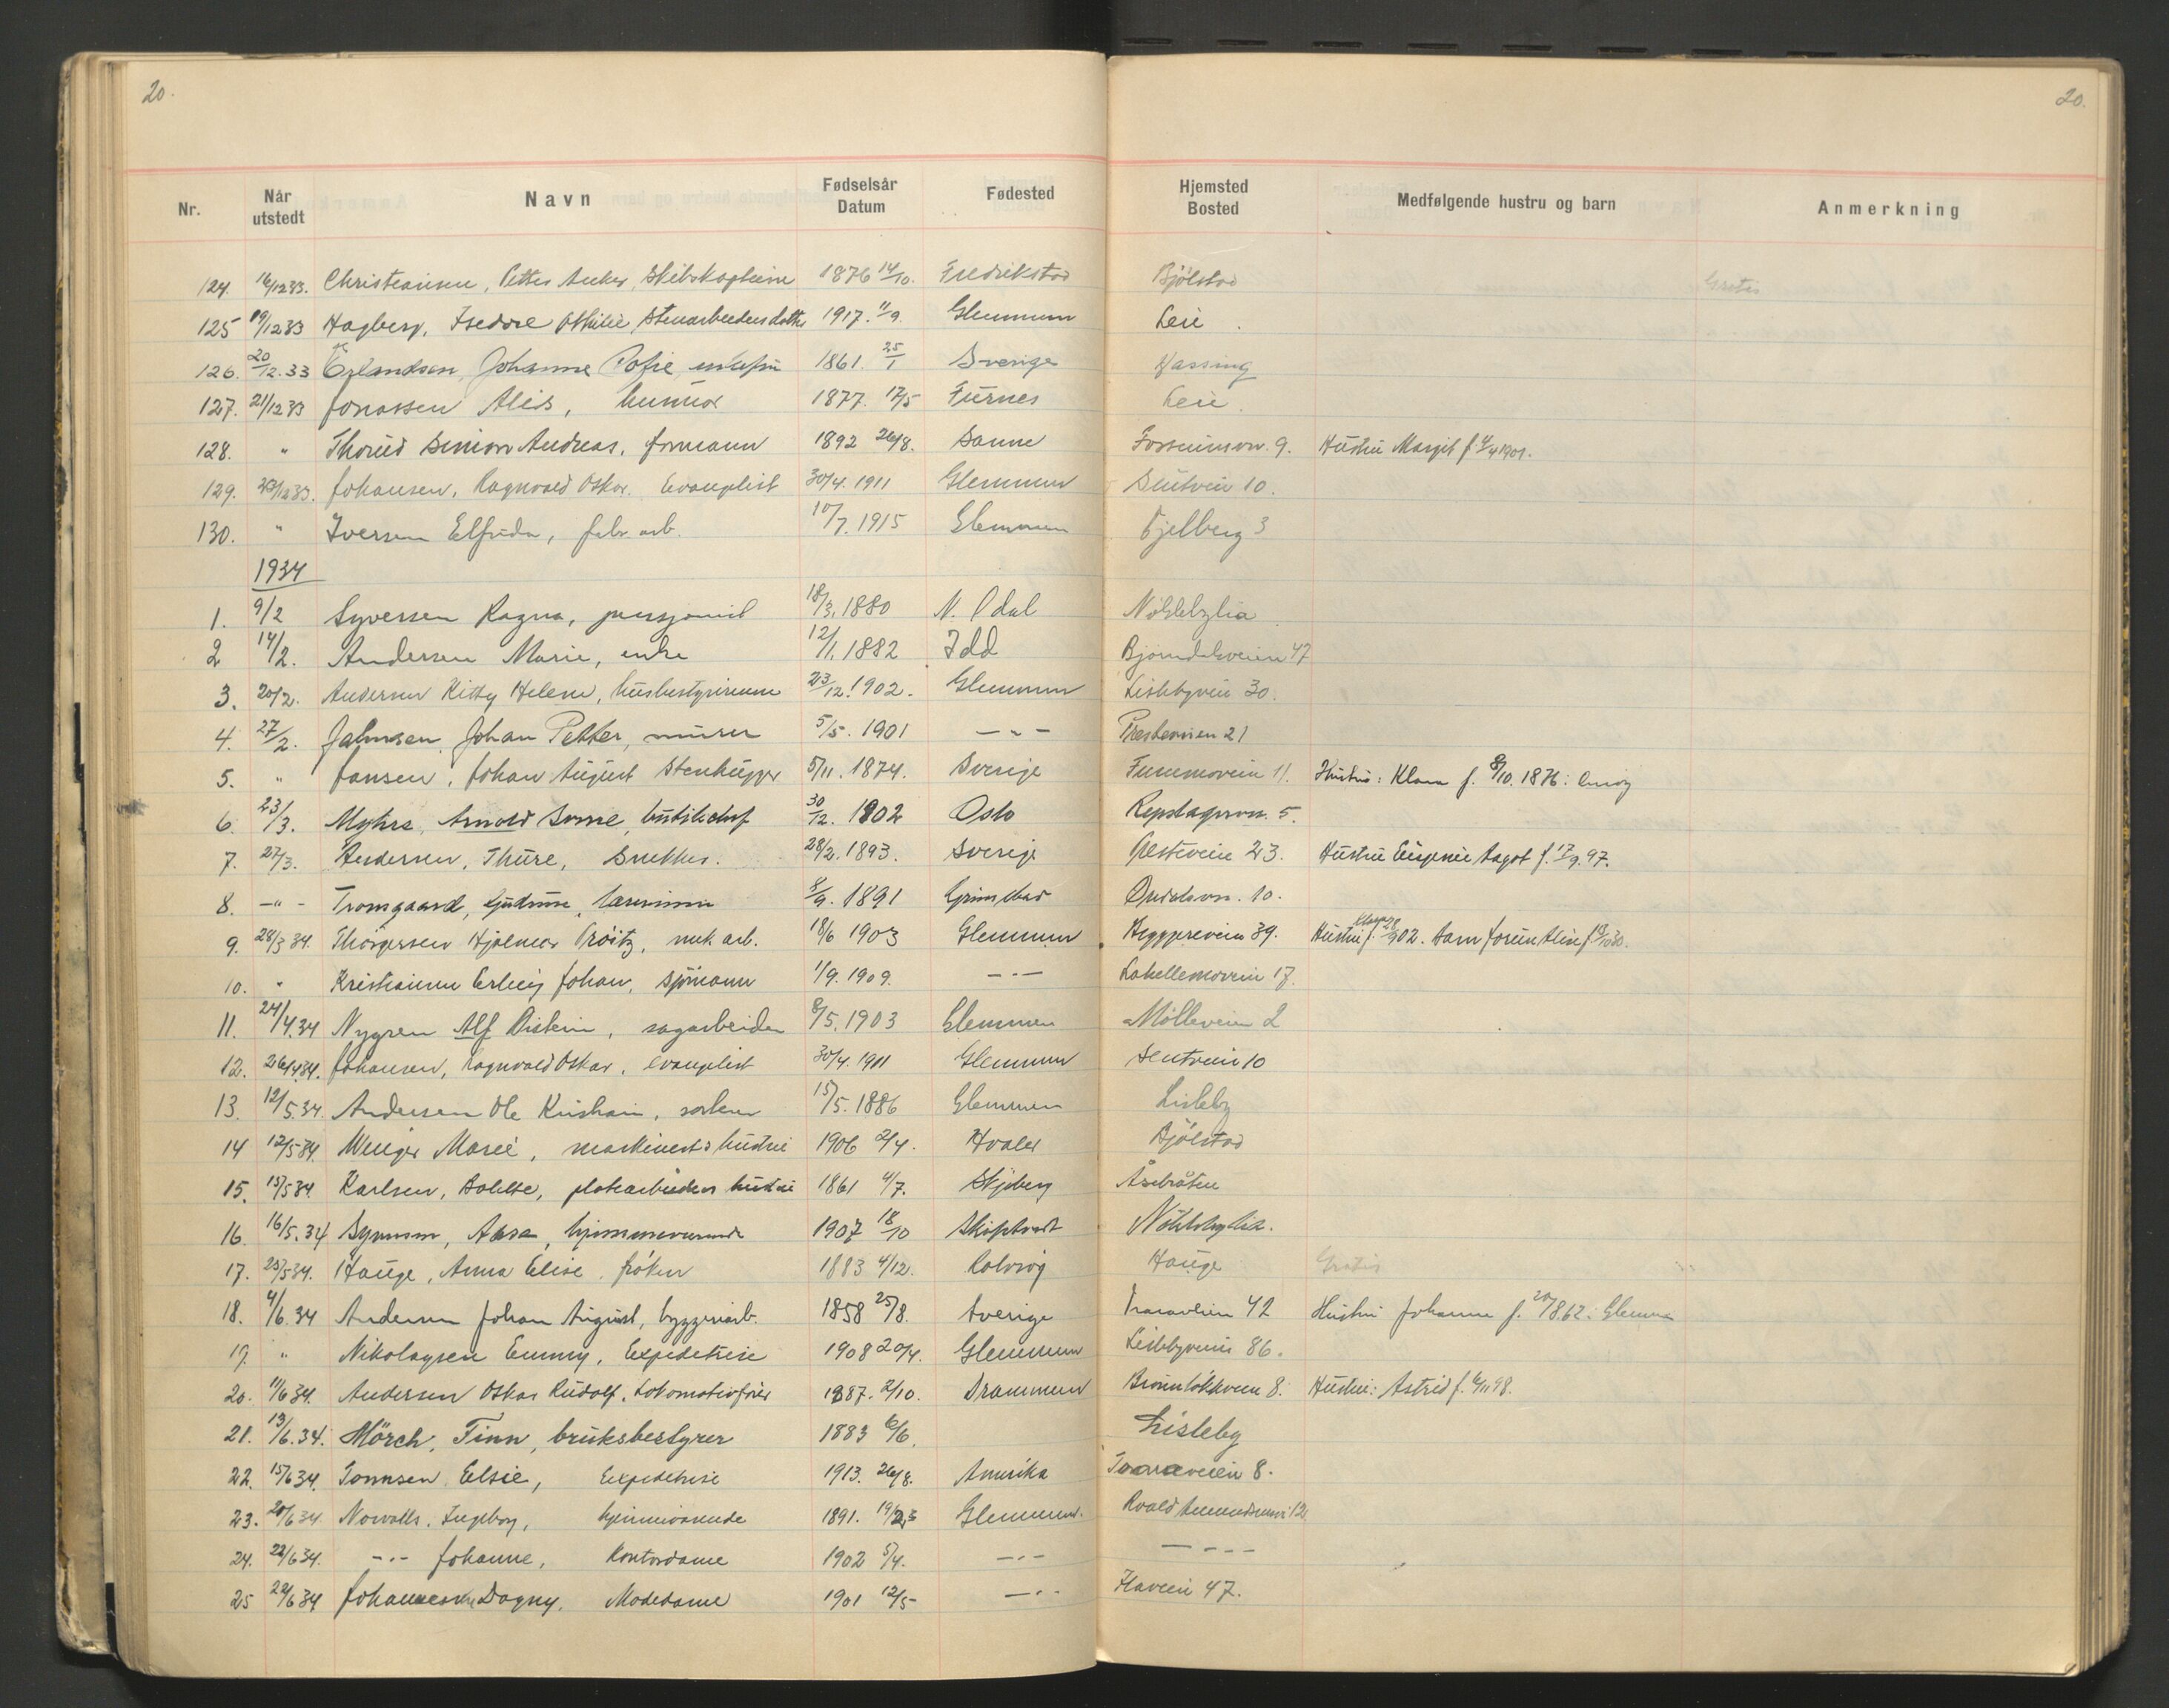 20. 20.
Nr. Når utstedt Navn Fødselsår Datum Fødested Hjemsted Bosted Medfølgende hustru og barn Anmerkning
124. 16/12 33. Christiansen, Petter Anker, Skibskaptein 1876 14/10. Fredrikstad Bjölstad Gratis
125 19/12 33 Hagberg, Othilie Stenarbeidersdatter 1917. 11/9 Glemmen Leie.
126. 20/12.33 Erlandsen, Johanne Sofie 1861. 25/1 Sverige Hassing
127. 21/12 33 Jonassen Alis, 1877. 17/5 Furnes Leie.
128. " Thorud Simon Andreas, formann 1892 26/8. Sanne 9. Hustru Margit f.
129. 23/12 33. Johansen, Ragnvald Oskar. Evangelist 30/4. 1911 Glemmen 10.
130. " Iversen Elfrida, fabr. arb. 10/7. 1915 Glemmen Fjelberg 3
1934
1. 9/2 Syversen Ragna, 18/3. 1880 N. Odal
2 14/2. Andersen Marie, enke 12/1. 1882 Idd Bjørndalsveien 47
3. 20/2. Andersen Kitty Helene, husbestyrinne 23/12. 1902. Glemmen Lislebyvein 30.
4. 27/2. Johan Petter, murer 5/5. 1901 — " — Presteveien 21
5. " Jansen, Johan August Stenhugger 5/11. 1874. Sverige 11. Hustru: Klara f. 8/10. 1876:
6. 23/3. Myhre, Arnold 30/12. 1902 Oslo 5.
7. 27/3. Andersen, Thure, Snekker. 28/2. 1893. Sverige 23. Hustru Eugenie Aagot f. 17/9. 97.
8. — " — Tromsgaard, Gudrun, lærerinne 8/9. 1891 Grimstad 10.
9. 28/3 34. Thorgersen Hjalmar Prøitz, mek. arb. 18/6 1903 Glemmen Byggeveien 39. Hustru f.
10. " Kristiansen Erling Johan, sjömann 1/9. 1909. — " — 17.
11. 24/4.34 Nygren Alf Øistein, sagarbeider 8/5. 1903 Glemmen Mölleveien 2
12. 26/4 34. Johansen, Ragnvald Oskar, evangelist 30/4. 1911 Glemmen 10
13. 12/5.34. Andersen Ole Kristian, 15/5. 1886 Glemmen Lisleby
14 12/5 34. Marie, maskinists hustru 1906 2/4. Hvaler Bjölstad
15. 15/5 34. Karlsen, Bolette, platearbeiders hustru 1861 4/7. Skjeberg Åsebråten
16. 16/5.34 Aasa, hjemmeværende 1907 18/10 Skiptvedt
17. 25/5 34. Hauge, Anna Elise, fröken 1883 4/12. Rolvsøy Hauge Gratis
18. 4/6.34 Andersen Johan August, byggeriarb. 1858 25/8. Sverige Traraveien 42 Hustru Johanne f. 20/8.62. Glemmen
19. " Nikolaysen Emmy, Expeditrise 1908 20/4. Glemmen Lislebyvein 86.
20. 11/6 34. Andersen Oskar Rudolf, Lokomotivfører 1887. 2/10. Drammen 8. Hustru: Astrid f. 98.
21. 13/6.34. Mörch, Finn, bruksbestyrer 1883 6/6. Lisleby
22. 15/6 34. Elsie, Expeditrise 1913. 26/8. Amerika Traraveien 8.
23. 20/6 34. Ingeborg, hjemmeværende 1891. Glemmen. Roald Amundsensv. 12.
24. 22/6 34. — " — Johanne, Kontordame 1902 5/4. — " — — " — —
25 22/6 34 Johannesen Dagny, Modedame 1901 12/5 — " — Haveien 47.